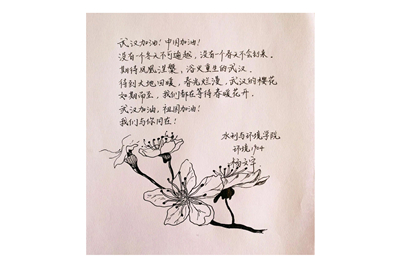 武汉加油！中国加油！
没有一个冬天不可逾越，没有一个春天不会到来。
期待凤凰涅槃，浴火重生的武汉。
待到大地回暖，春光烂漫，武汉的樱花
如期而至，我们都在等待春暖花开。
武汉加油，祖国加油！
我们与你同在！
水利与环境学院
环境1904